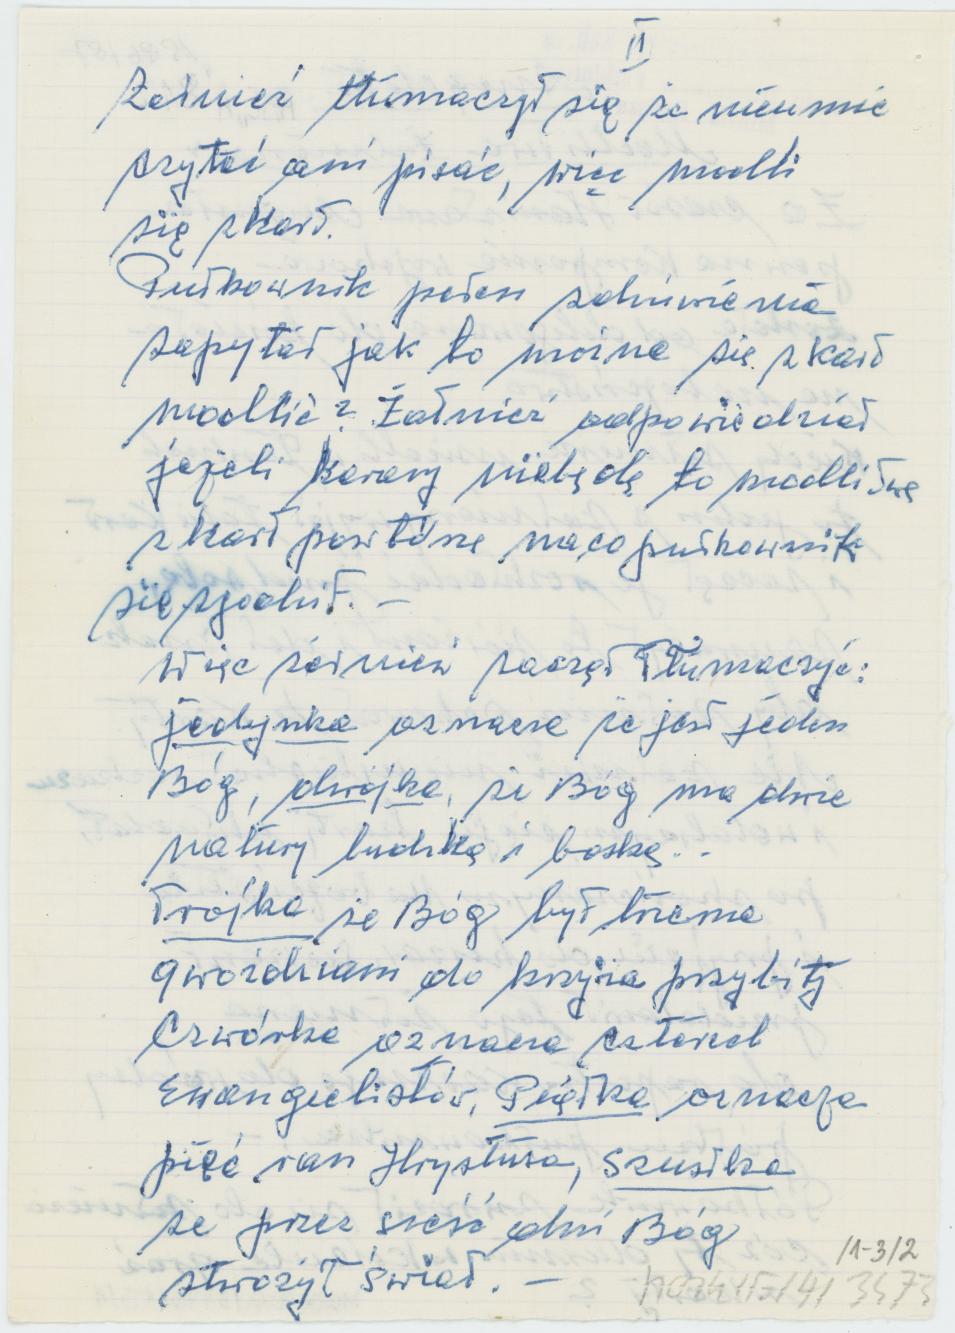 II
Żołnierz tłumaczył się że nieumie
czytać ani pisać, więc modli
się z kart.
Pułkownik pełen zdziwienia
zapytał jak to można się z kart
modlić? Żołnierz odpowiedział
jeżeli karany niebędę to modlitwę
z kart powtórzę na co pułkownik
się zgodził. —
Więc żołnierz zaczął Tłumaczyć:
jedynka oznacza że jest jeden
Bóg, dwójka, że Bóg ma dwie
natury ludzką i boską..
Trójka że Bóg był trzema
gwoździami do krzyża przybity
Czwórka oznacza czterech
Ewangielistów, Piątka oznacza
pięć ran Hrystusa, Szustka
że przez sześć dni Bóg
stworzył świat. —
/1-3/2
3473